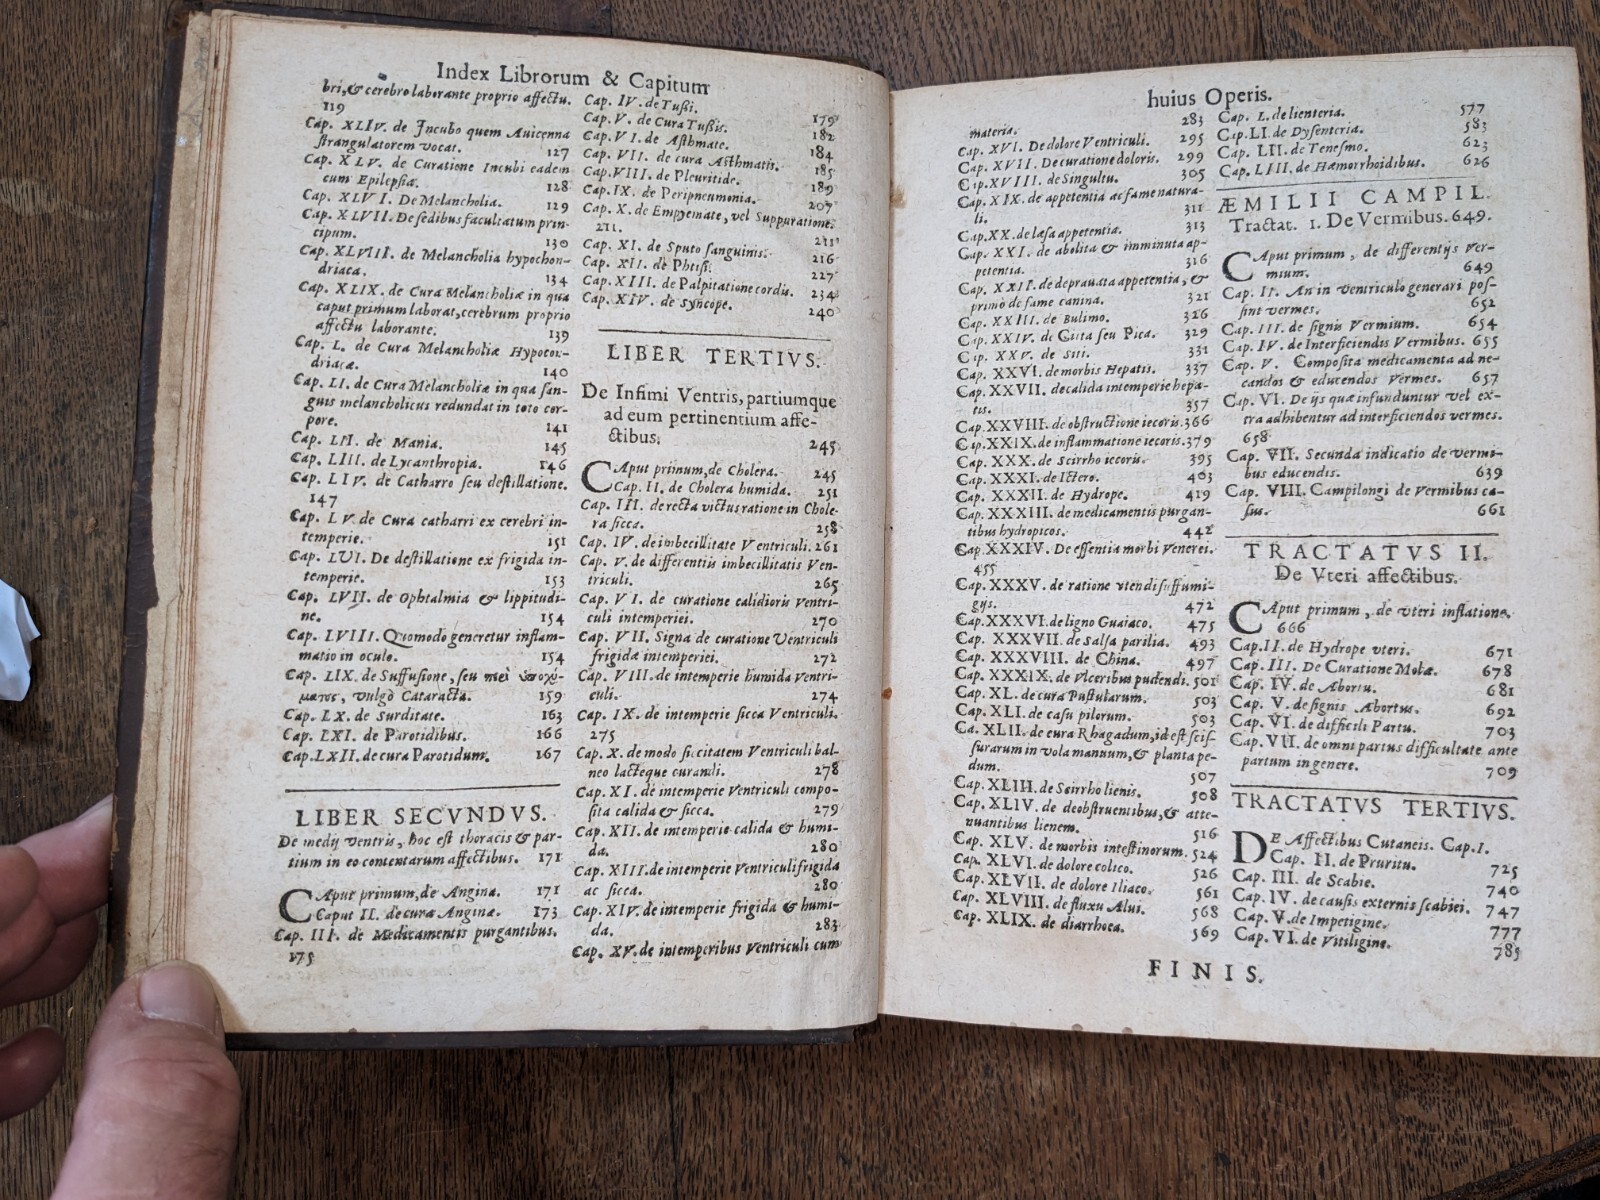 Index Librorum & Capitum
bri, & cerebro laborante proprio affectu.
119
Cap. XLIV. de Incubo quem Auicenna
strangulatorem vocat. 127
Cap. XLV. de Curatione Incubi eadem
cum Epilepsiæ. 128
Cap. XLVI. De Melancholia. 129
Cap. XLVII. De sedibus facultatum prin-
cipum. 130
Cap. XLVIII. de Melancholia hypochon-
driaca. 134
Cap. XLIX. de Cura Melancholiæ in qua
caput primum laborat, cerebrum proprio
affectu laborante. 139
Cap. L. de Cura Melancholiæ Hypocon-
driacæ. 140
Cap. LI. de Cura Melancholiæ in qua san-
guis melancholicus redundat in toto cor-
pore. 141
Cap. LII. de Mania. 145
Cap. LIII. de Lycanthropia. 146
Cap. LIV. de Catharro seu destillatione.
147
Cap. LV. de Cura catharri ex cerebri in-
temperie. 151
Cap. LVI. De destillatione ex frigida in-
temperie. 153
Cap. LVII. de Ophtalmia & lippitudi-
ne. 154
Cap. LVIII. Quomodo generetur inflam-
matio in oculo. 154
Cap. LIX. de Suffusione, seu περὶ ὑποχύ-
ματος, vulgò Cataracta. 159
Cap. LX. de Surditate. 163
Cap. LXI. de Parotidibus. 166
Cap. LXII. de cura Parotidum. 167
LIBER SECVNDVS.
De medij ventris, hoc est thoracis & par-
tium in eo contentarum affectibus. 171
CAput primum, de Angina. 171
Caput II. de cura Anginæ. 173
Cap. III. de Medicamentis purgantibus.
175
Cap. IV. de Tussi. 179
Cap. V. de Cura Tussis. 182
Cap. VI. de Asthmate. 184
Cap. VII. de cura Asthmatis. 185
Cap. VIII. de Pleuritide. 189
Cap. IX. de Peripneumonia. 207
Cap. X. de Empyemate, vel Suppuratione.
211.
Cap. XI. de Sputo sanguinis. 216
Cap. XII. de Phtisi. 227
Cap. XIII. de Palpitatione cordis. 234
Cap. XIV. de Syncope. 240
LIBER TERTIVS.
De Infimi Ventris, partiumque
ad eum pertinentium affe-
ctibus. 245
CAput primum, de Cholera. 245
Cap. II. de Cholera humida. 251
Cap. III. de recta victus ratione in Chole-
ra sicca. 258
Cap. IV. de imbecillitate Ventriculi. 261
Cap. V. de differentiis imbecillitatis Ven-
triculi. 265
Cap. VI. de curatione calidioris Ventri-
culi intemperiei. 270
Cap. VII. Signa de curatione Ventriculi
frigidæ intemperiei. 272
Cap. VIII. de intemperie humida Ventri-
culi. 274
Cap. IX. de intemperie sicca Ventriculi.
275
Cap. X. de modo siccitatem Ventriculi bal-
neo lacteque curandi. 278
Cap. XI. de intemperie Ventriculi compo-
sita calida & sicca. 279
Cap. XII. de intemperie calida & humi-
da. 280
Cap. XIII. de intemperie Ventriculi frigida
ac sicca. 280
Cap. XIV. de intemperie frigida & humi-
da. 283
Cap. XV. de intemperibus Ventriculi cum
huius Operis.
materia. 283
Cap. XVI. De dolore Ventriculi. 295
Cap. XVII. De curatione doloris. 299
Cap. XVIII. de Singultu. 305
Cap. XIX. de appetentia ac fame natura-
li. 311
Cap. XX. de læsa appetentia. 313
Cap. XXI. de abolita & imminuta ap-
petentia. 316
Cap. XXII. de deprauata appetentia, &
primò de fame canina. 321
Cap. XXIII. de Bulimo. 326
Cap. XXIV. de Citta seu Pica. 329
Cap. XXV. de Siti. 331
Cap. XXVI. de morbis Hepatis. 337
Cap. XXVII. de calida intemperie hepa-
tis. 357
Cap. XXVIII. de obstructione iecoris. 366
Cap. XXIX. de inflammatione iecoris. 379
Cap. XXX. de Scirrho iecoris. 395
Cap. XXXI. de Ictero. 403
Cap. XXXII. de Hydrope. 419
Cap. XXXIII. de medicamentis purgan-
tibus hydropicos. 442
Cap. XXXIV. De essentia morbi Venerei.
455
Cap. XXXV. de ratione vtendi suffumi-
gijs. 472
Cap. XXXVI. de ligno Guaiaco. 475
Cap. XXXVII. de Salsa parilia. 493
Cap. XXXVIII. de China. 497
Cap. XXXIX. de Vlceribus pudendi. 501
Cap. XL. de cura Pustularum. 503
Cap. XLI. de casu pilorum. 503
Ca. XLII. de cura Rhagadum, id est scis-
surarum in vola manuum, & planta pe-
dum. 507
Cap. XLIII. de Scirrho lienis. 508
Cap. XLIV. de deobstruentibus, & atte-
nuantibus lienem. 516
Cap. XLV. de morbis intestinorum. 524
Cap. XLVI. de dolore colico. 526
Cap. XLVII. de dolore Iliaco. 561
Cap. XLVIII. de fluxu Alui. 568
Cap. XLIX. de diarrhoea. 569
Cap. L. de lienteria. 577
Cap. LI. de Dysenteria. 583
Cap. LII. de Tenesmo. 623
Cap. LIII. de Hæmorrhoidibus. 626
ÆMILII CAMPIL.
Tractat. 1. De Vermibus. 649.
CAput primum, de differentijs ver-
mium. 649
Cap. II. An in ventriculo generari pos-
sint vermes. 652
Cap. III. de signis Vermium. 654
Cap. IV. de Interficiendis Vermibus. 655
Cap. V. Composita medicamenta ad ne-
candos & educendos Vermes. 657
Cap. VI. De ijs quæ infunduntur vel ex-
tra adhibentur ad interficiendos vermes.
658
Cap. VII. Secunda indicatio de vermi-
bus educendis. 639
Cap. VIII. Campilongi de Vermibus ca-
sus. 661
TRACTATVS II.
De Vteri affectibus.
CAput primum, de vteri inflatione.
666
Cap. II. de Hydrope vteri. 671
Cap. III. De Curatione Molæ. 678
Cap. IV. de Abortu. 681
Cap. V. de signis Abortus. 692
Cap. VI. de difficili Partu. 703
Cap. VII. de omni partus difficultate ante
partum in genere. 709
TRACTATVS TERTIVS.
DE Affectibus Cutaneis. Cap. I.
Cap. II. de Pruritu. 725
Cap. III. de Scabie. 740
Cap. IV. de causis externis scabiei. 747
Cap. V. de Impetigine. 777
Cap. VI. de Vitiligine. 785
FINIS.